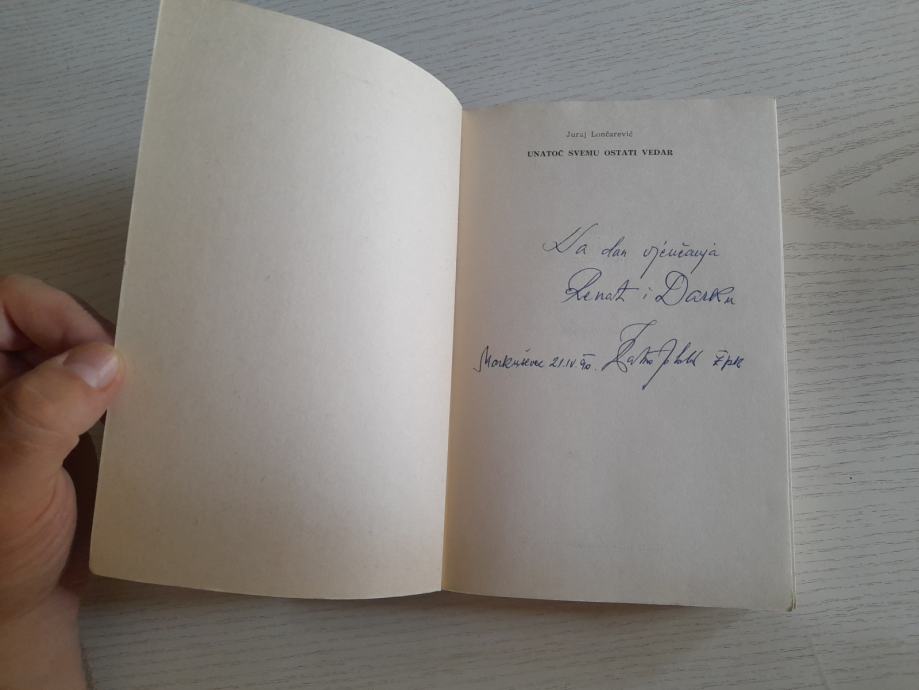 Juraj Lončarević
UNATOČ SVEMU OSTATI VEDAR
Na dan vjenčanja
Renati i Darku
Markuševec 21.IV.90. Zlatko